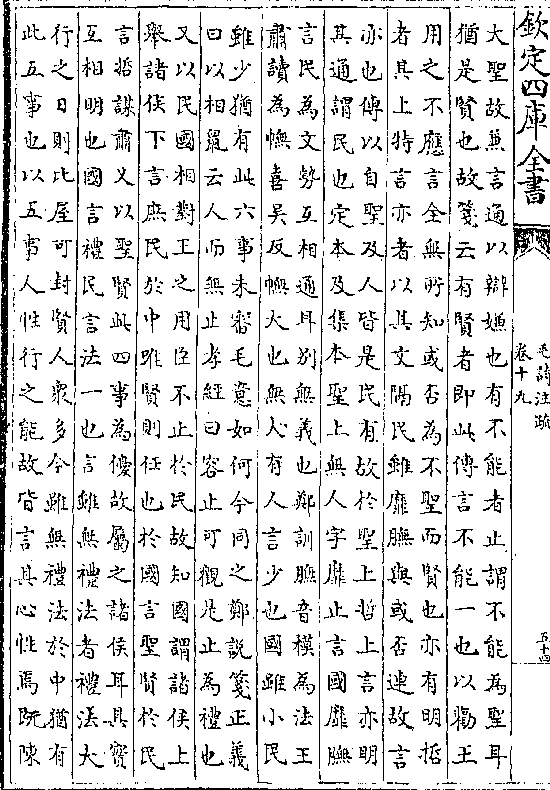 欽定四庫全書
毛詩注疏
卷十九
五十四
大聖故兼言通以辯嫌也有不能者止謂不能為聖耳
猶是賢也故箋云有賢者即此傳言不能一也以勸王
用之不應言全無所知或否為不聖而賢也亦有明哲
者其上特言亦者以其文隔民雖靡膴與或否連故言
亦也傳以自聖及人皆是民有故於聖上哲上言亦明
其通謂民也定本及集本聖上無人字靡止言國靡膴
言民為文勢互相通耳別無義也鄭訓膴音模為法王
肅讀為幠喜吳反幠大也無大有人言少也國雖小民
雖少猶有此六事未審毛意如何今同之鄭說箋正義
曰以相鼠云人而無止孝經曰容止可觀是止為禮也
又以民國相對王之用臣不止於民故知國謂諸侯上
舉諸侯下言庶民於中唯賢則任也於國言聖賢於民
言哲謀肅乂以聖賢此四事為優故屬之諸侯耳其實
互相明也國言禮民言法一也言雖無禮法者禮法大
行之日則比屋可封賢人衆多今雖無禮法於中猶有
此五事也以五事人性行之能故皆言其心性焉既陳